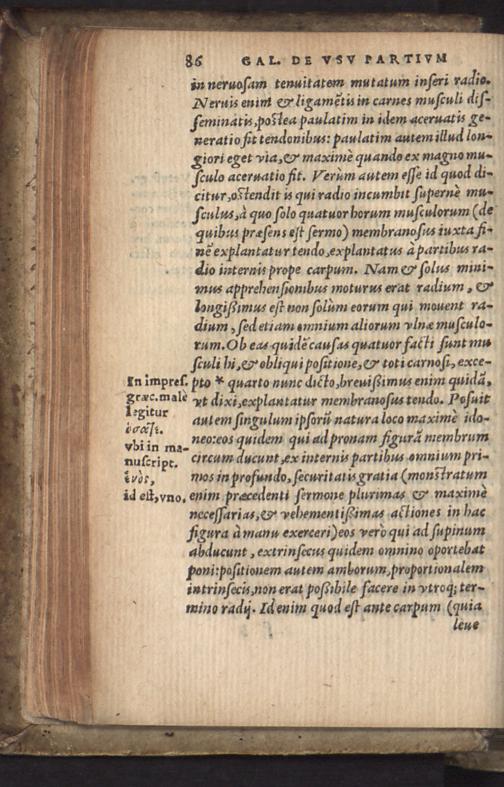 86 GAL. DE VSV PARTIVM
in neruosam tenuitatem mutatum inseri radio.
Neruis enim & ligamẽtis in carnes musculi dis-
seminatis, postea paulatim in idem aceruatis ge-
neratio fit tendonibus: paulatim autem illud lon-
giori eget via, & maximè quando ex magno mu-
sculo aceruatio fit. Verùm autem esse id quod di-
citur, ostendit is qui radio incumbit supernè mu-
sculus, à quo solo quatuor horum musculorum (de
quibus præsens est sermo) membranosus iuxta fi-
nẽ explantatur tendo, explantatus à partibus ra-
dio internis prope carpum. Nam & solus mini-
mus apprehensionibus moturus erat radium, &
longißimus est non solùm eorum qui mouent ra-
dium, sed etiam omnium aliorum vlnæ musculo-
rum. Ob eas quidẽ causas quatuor facti sunt mu
sculi hi, & obliqui positione, & toti carnosi, exce-
pto * quarto nunc dicto, breuißimus enim quidã,
vt dixi, explantatur membranosus tendo. Posuit
autem singulum ipsorũ natura loco maximè ido-
neo: eos quidem qui ad pronam figurã membrum
circum ducunt, ex internis partibus omnium pri-
mos in profundo, securitatis gratia (monstratum
enim præcedenti sermone plurimas & maximè
necessarias, & vehementißimas actiones in hac
figura à manu exerceri) eos verò qui ad supinum
abducunt, extrinsecus quidem omnino oportebat
poni: positionem autem amborum, proportionalem
intrinsecis, non erat poßibile facere in vtroq; ter-
mino radij. Id enim quod est ante carpum (quia
leue
In impress.
græc. malè
legitur
vbi in ma-
nuscript.
ἑνὸς,
id est, vno.